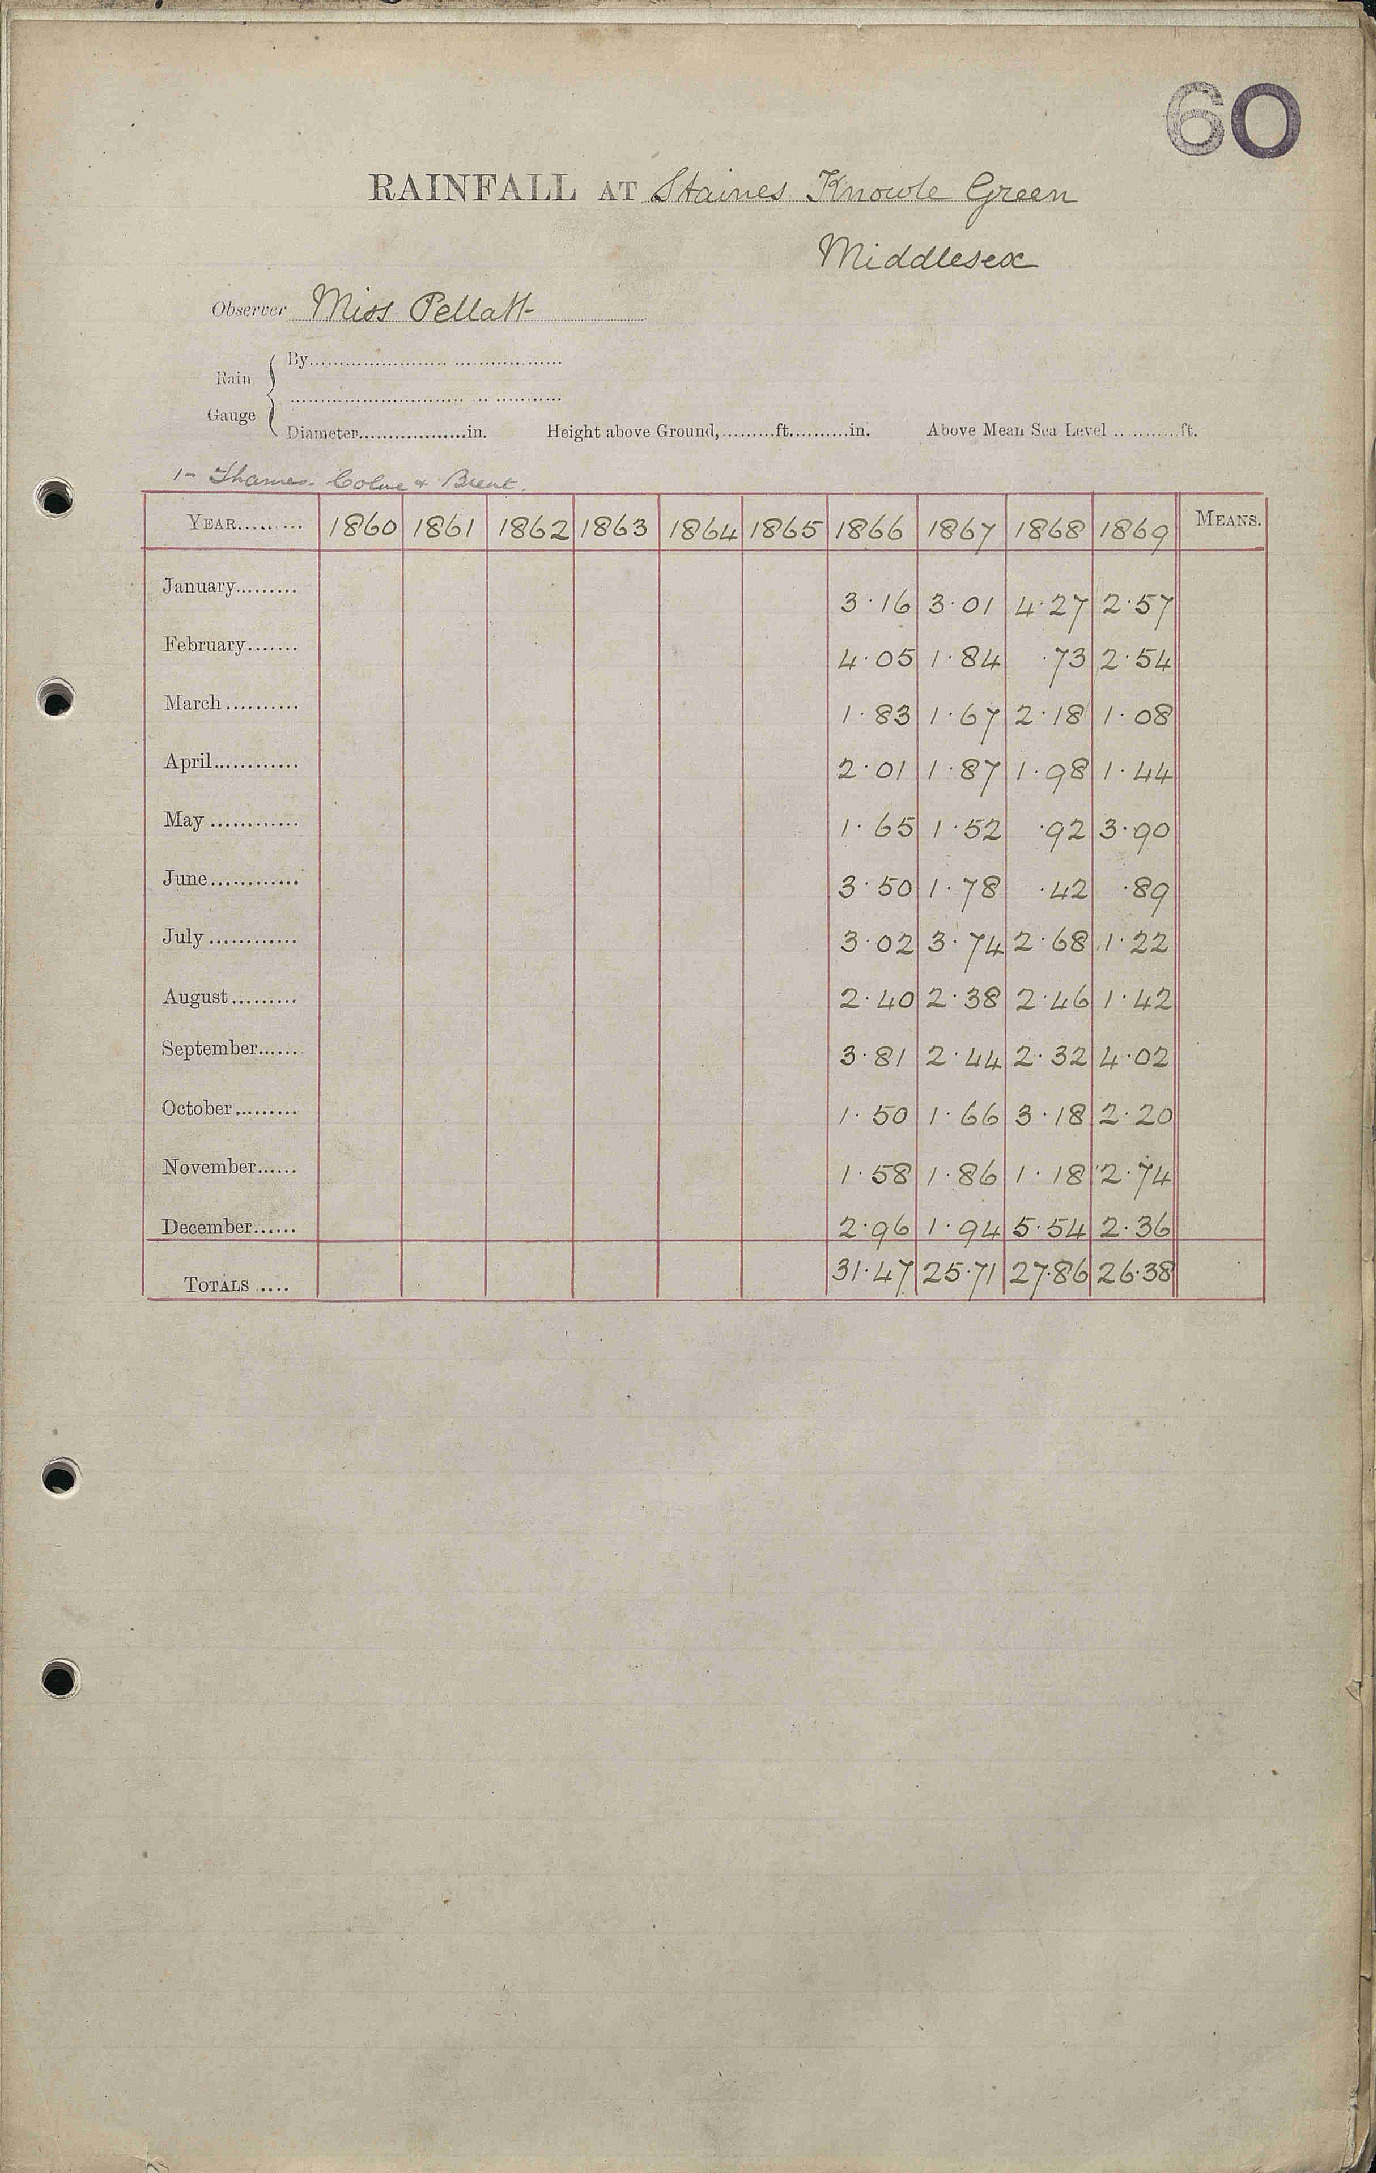 60
RAINFALL AT Staines Knowle Green
Middlesex
Observer Miss Pellatt
Rain Gauge
By
Diameter in. Height above Ground, ft. in. Above Mean Sea Level ft.
1- Thames. Colne & Brent.
YEAR 1860 1861 1862 1863 1864 1865 1866 1867 1868 1869 MEANS.
January 3.16 3.01 4.27 2.57
February 4.05 1.84 .73 2.54
March 1.83 1.67 2.18 1.08
April 2.01 1.87 1.98 1.44
May 1.65 1.52 .92 3.90
June 3.50 1.78 .42 .89
July 3.02 3.74 2.68 1.22
August 2.40 2.38 2.46 1.42
September 3.81 2.44 2.32 4.02
October 1.50 1.66 3.18 2.20
November 1.58 1.86 1.18 2.74
December 2.96 1.94 5.54 2.36
TOTALS 31.47 25.71 27.86 26.38